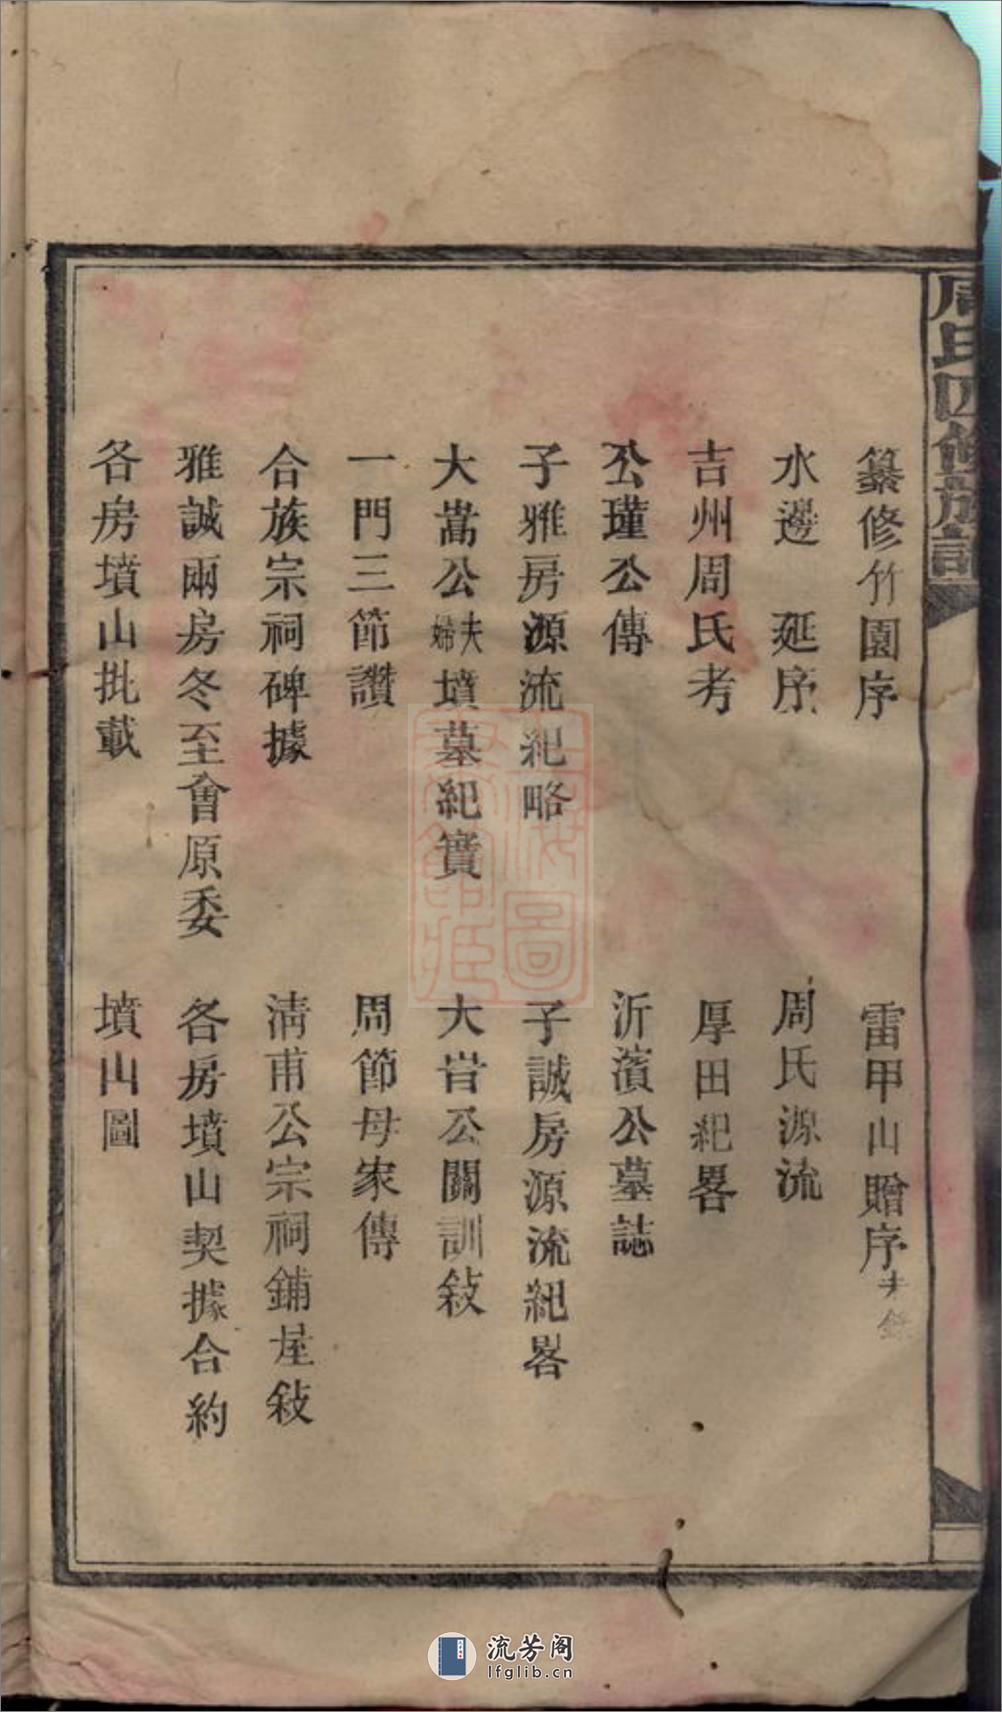 周氏四修族譜
纂修竹園序
雷甲山贈序未錄
水邊 延序
周氏源流
吉州周氏考
厚田紀畧
公瑾公傳
沂濱公墓誌
子雅房源流紀略
子誠房源流紀畧
大嵩公夫婦墳墓紀實
大昔公闢訓敍
一門三節讚
周節母家傳
合族宗祠碑據
淸甫公宗祠鋪屋敍
雅誠兩房冬至會原委
各房墳山契據合約
各房墳山批載
墳山圖
流芳阁
lfglib.cn